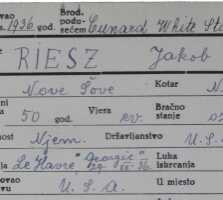 ovao
1936. god. Brod. podu-
zećem Cunard White Sta
RIESZ Jakob
Nove Šove Kotar N
50 god. Vjera ev. Bračno
stanje
nost Njem. Državljanstvo U.S.
Le Havre "Georgic" Luka
iskrcanja
ovao
U. S. A. U mjesto